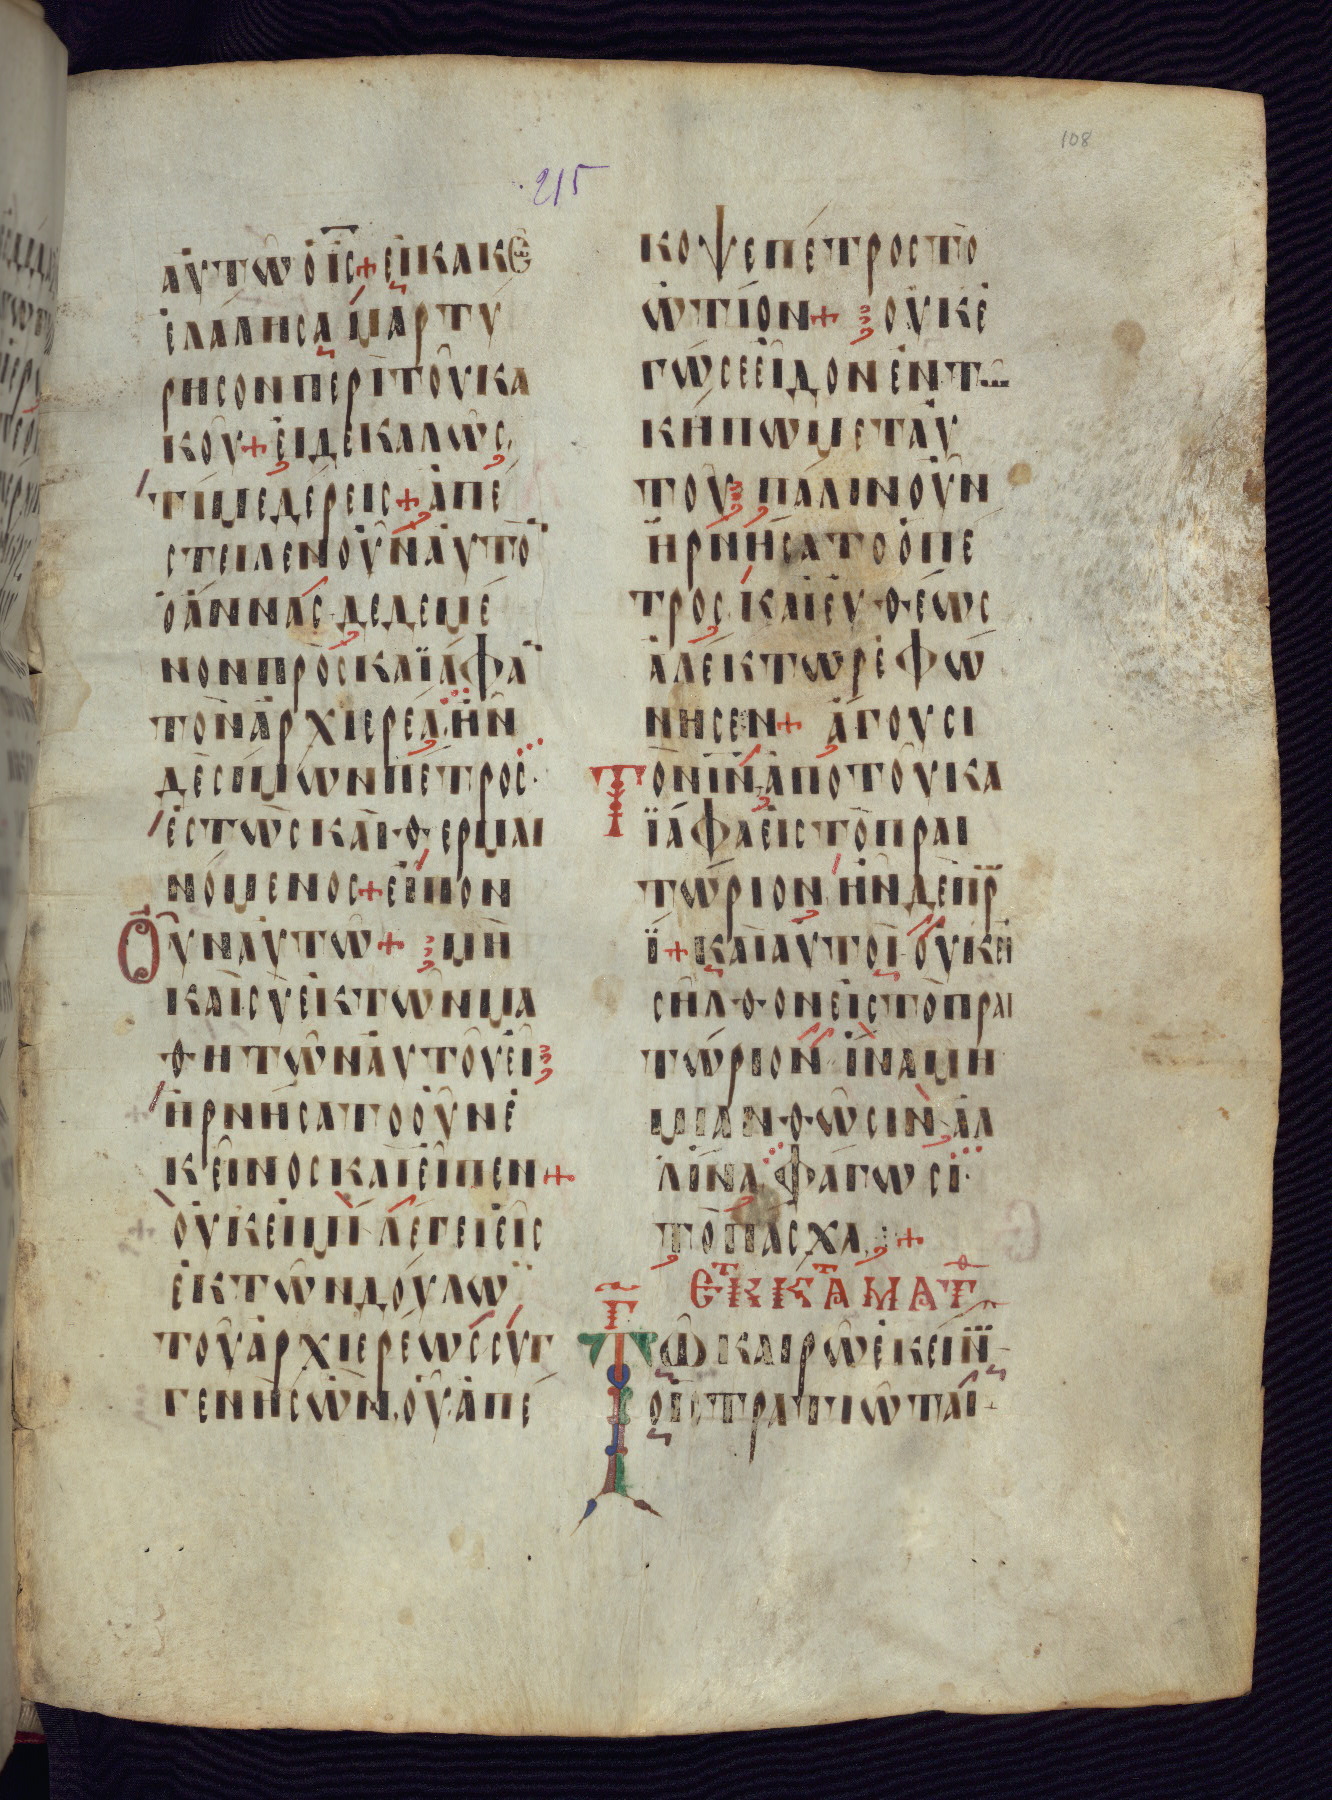 108
215
αὐτῶ ὁ ἰς + εἰ κακῶς
ἐλάλησα μαρτύ
ρησον περὶ τοῦ κα
κοῦ + εἰ δὲ καλῶς,
τί με δέρεις + ἀπέ
στειλεν οὖν αὐτὸ
ὁ ἄννας δεδεμέ
νον πρὸς καϊάφα
τὸν ἀρχιερέα. ἦν
δὲ σίμων πέτρος.
ἑστὼς καὶ θερμαι
νόμενος + εἶπον
Οὖν αὐτῶ + μὴ
καὶ σὺ ἐκ τῶν μα
θητῶν αὐτοῦ εἶ
ἠρνήσατο οὖν ἐ
κεῖνος καὶ εἶπεν +
οὐκ εἰμί λέγει εἷς
ἐκ τῶν δούλω
τοῦ ἀρχιερέως συγ
γενὴς ὢν, οὗ ἀπέ
κοψε πέτρος τὸ
ὠτίον + οὐκ ἐ
γώ σε εἶδον ἐν τ
κήπω μετ αυ
τοῦ πάλιν οὖν
ἠρνήσατο ὁ πέ
τρος, καὶ εὐθέως
ἀλέκτωρ ἐφώ
νησεν + ἄγουσι
Τὸν ἰν ἀπὸ τοῦ κα
ϊάφα εἰς τὸ πραι
τώριον ἦν δὲ πρ
ΐ + καὶ αὐτοὶ οὐκ εἰ
σῆλθον εἰς τὸ πραι
τώριον ἵνα μὴ
μιανθῶσιν ἀλ
λ ἵνα φάγωσϊ.
τὸ πάσχα +
ΕΤΚ Κ̅Τ̅Α ΜΑΤΘ
Τῶ καιρῶ ἐκείν
οἱ στρατιῶται